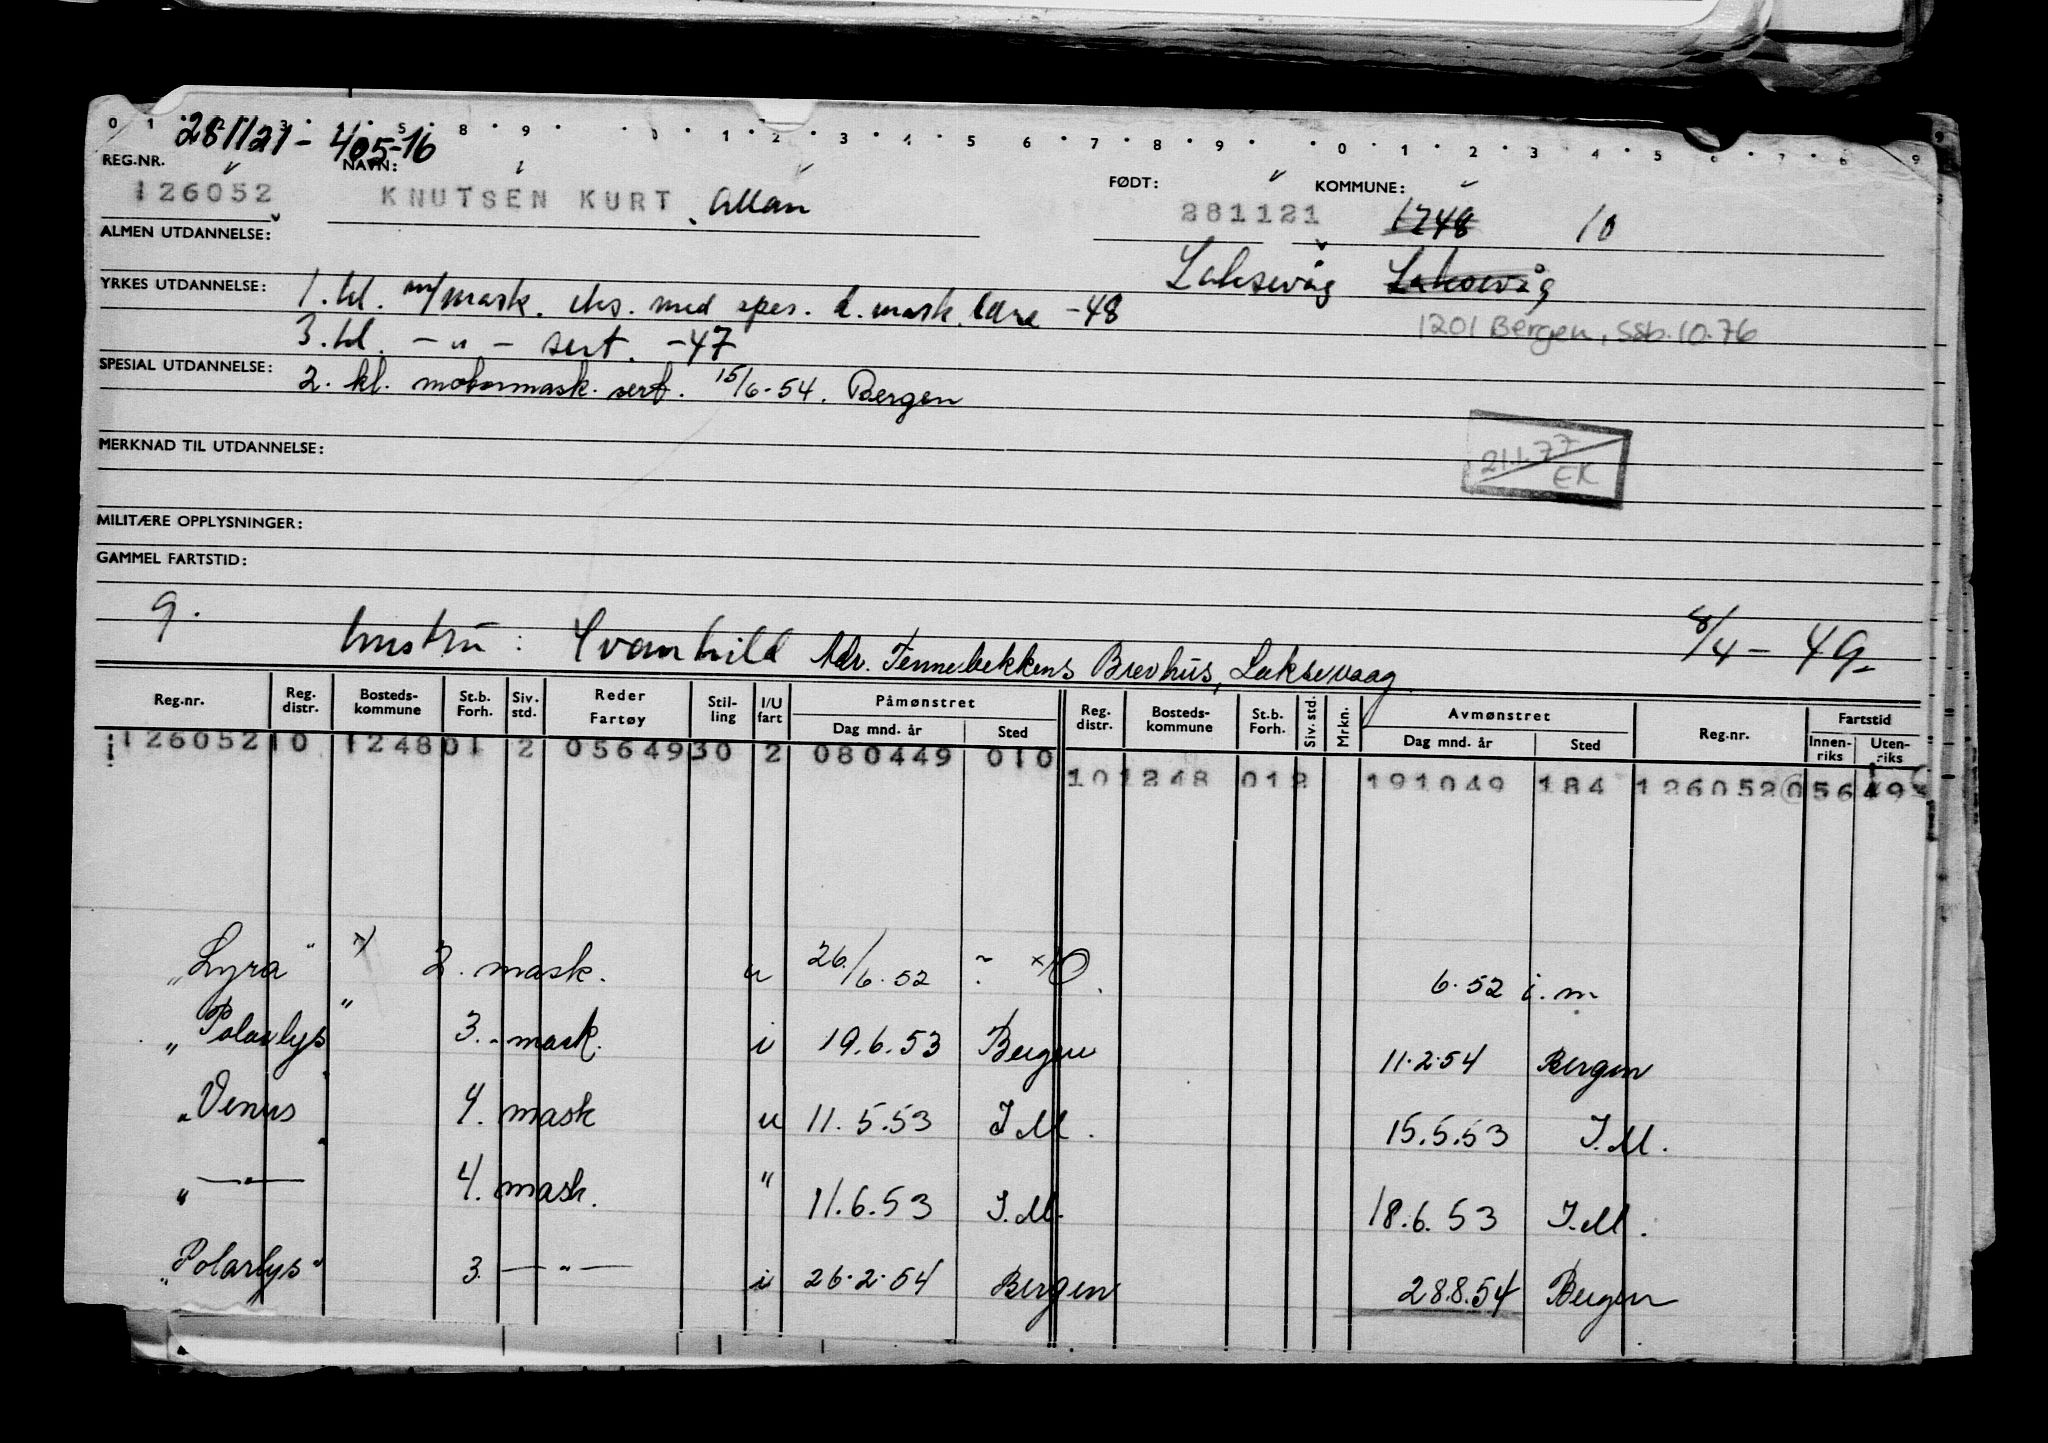 0 1 3 5 8 9 0 1 2 3 4 5 6 7 8 9 0 1 2 3 4 5 6 7 8 9
281121 - 405-16
REG.NR. NAVN: FØDT: KOMMUNE:
126052 KNUTSEN KURT, Allan 281121 1248 10
ALMEN UTDANNELSE:
Laksevåg Laksevåg
YRKES UTDANNELSE: 1. kl. m/mask. eks. med spes. d. mask. lære -48
1201 Bergen, SSB.10.76
3. kl. - " - sert. -47
SPESIAL UTDANNELSE: 2. kl. motormask. sert. 15/6-54. Bergen
MERKNAD TIL UTDANNELSE:
21.1.77
EK
MILITÆRE OPPLYSNINGER:
GAMMEL FARTSTID:
g. hustru: Svanhild Adr. Tennebekkens Brevhus, Laksevaag 8/4 - 49
Reg.nr. Reg. distr. Bosteds-kommune St.b. Forh. Siv. std. Reder Fartøy Stil-ling I/U fart Påmønstret Dag mnd. år Sted Reg. distr. Bosteds-kommune St.b. Forh. Siv. std. Mrkn. Avmønstret Dag mnd. år Sted Reg.nr. Fartstid Innen-riks Uten-riks
126052 10 1248 01 2 056493 0 2 080449 010
10 1248 01 2 191049 184 126052 0 56 49
„Lyra" x/ 2. mask. u 26/6.52 6.52 i.m
„Polarlys" 3. mask. i 19.6.53 Bergen 11.2.54 Bergen
„Venus" 4. mask u 11.5.53 I.M. 15.5.53 I.M.
„ — " — 4. mask. " 11.6.53 I.M. 18.6.53 I.M.
„Polarlys" 3. — " — i 26.2.54 Bergen 28.8.54 Bergen